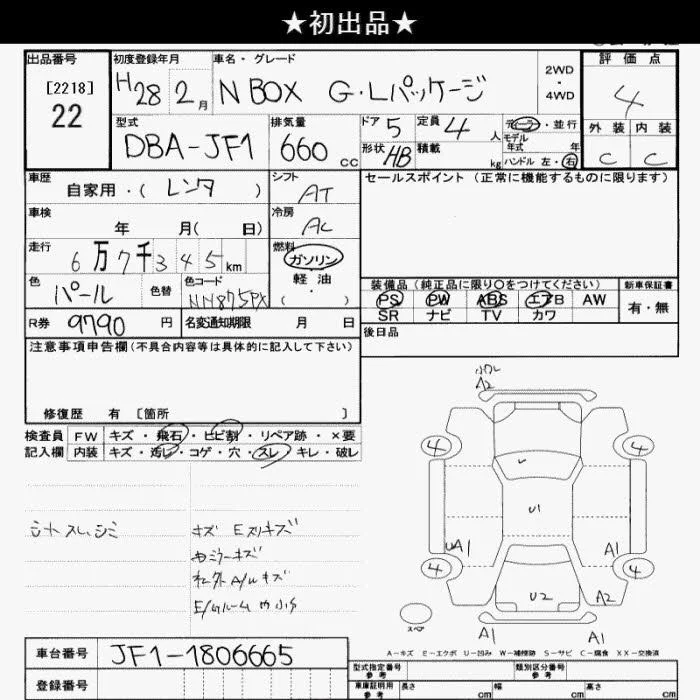 ★初出品★
出品番号 初度登録年月 車名・グレード 評価点
[2218] 22 H28 2月 N BOX G・Lパッケージ 2WD ・ 4WD 4
型式 排気量 ドア 5 定員 4人 ディーラー・並行 外装 内装
DBA-JF1 660cc 形状 HB 積載 kg モデル年式 年 ハンドル 左・右 C C
車歴 自家用・(レンタ) シフト AT セールスポイント(正常に機能するものに限ります)
車検 年 月(日) 冷房 AC
走行 6万7千345km 燃料 ガソリン・軽油・( )
色 パール 色替 色コード NH875PX 装備品(純正品に限り〇をつけてください) 新車保証書
PS PW ABS エアB AW 有・無
SR ナビ TV カワ
R券 9790円 名変通知期限 月 日 後日品
注意事項申告欄(不具合内容等は具体的に記入して下さい)
修復歴 有 [箇所 ]
検査員 FW キズ・飛石・ヒビ割・リペア跡・×要
記入欄 内装 キズ・汚レ・コゲ・穴・スレ・キレ・破レ
A2
4 4
U1
UA1 A1
4 4
U2 A2
スペア A1 A1
シートスレ、シミ
キズ
A-キズ E-エクボ U-凹み W-補修跡 S-サビ C-腐食 XX-交換済
車台番号 JF1-1806665
登録番号
型式指定番号 参考 類別区分番号 参考
車庫証明用 参考 長さ cm 幅 cm 高さ cm